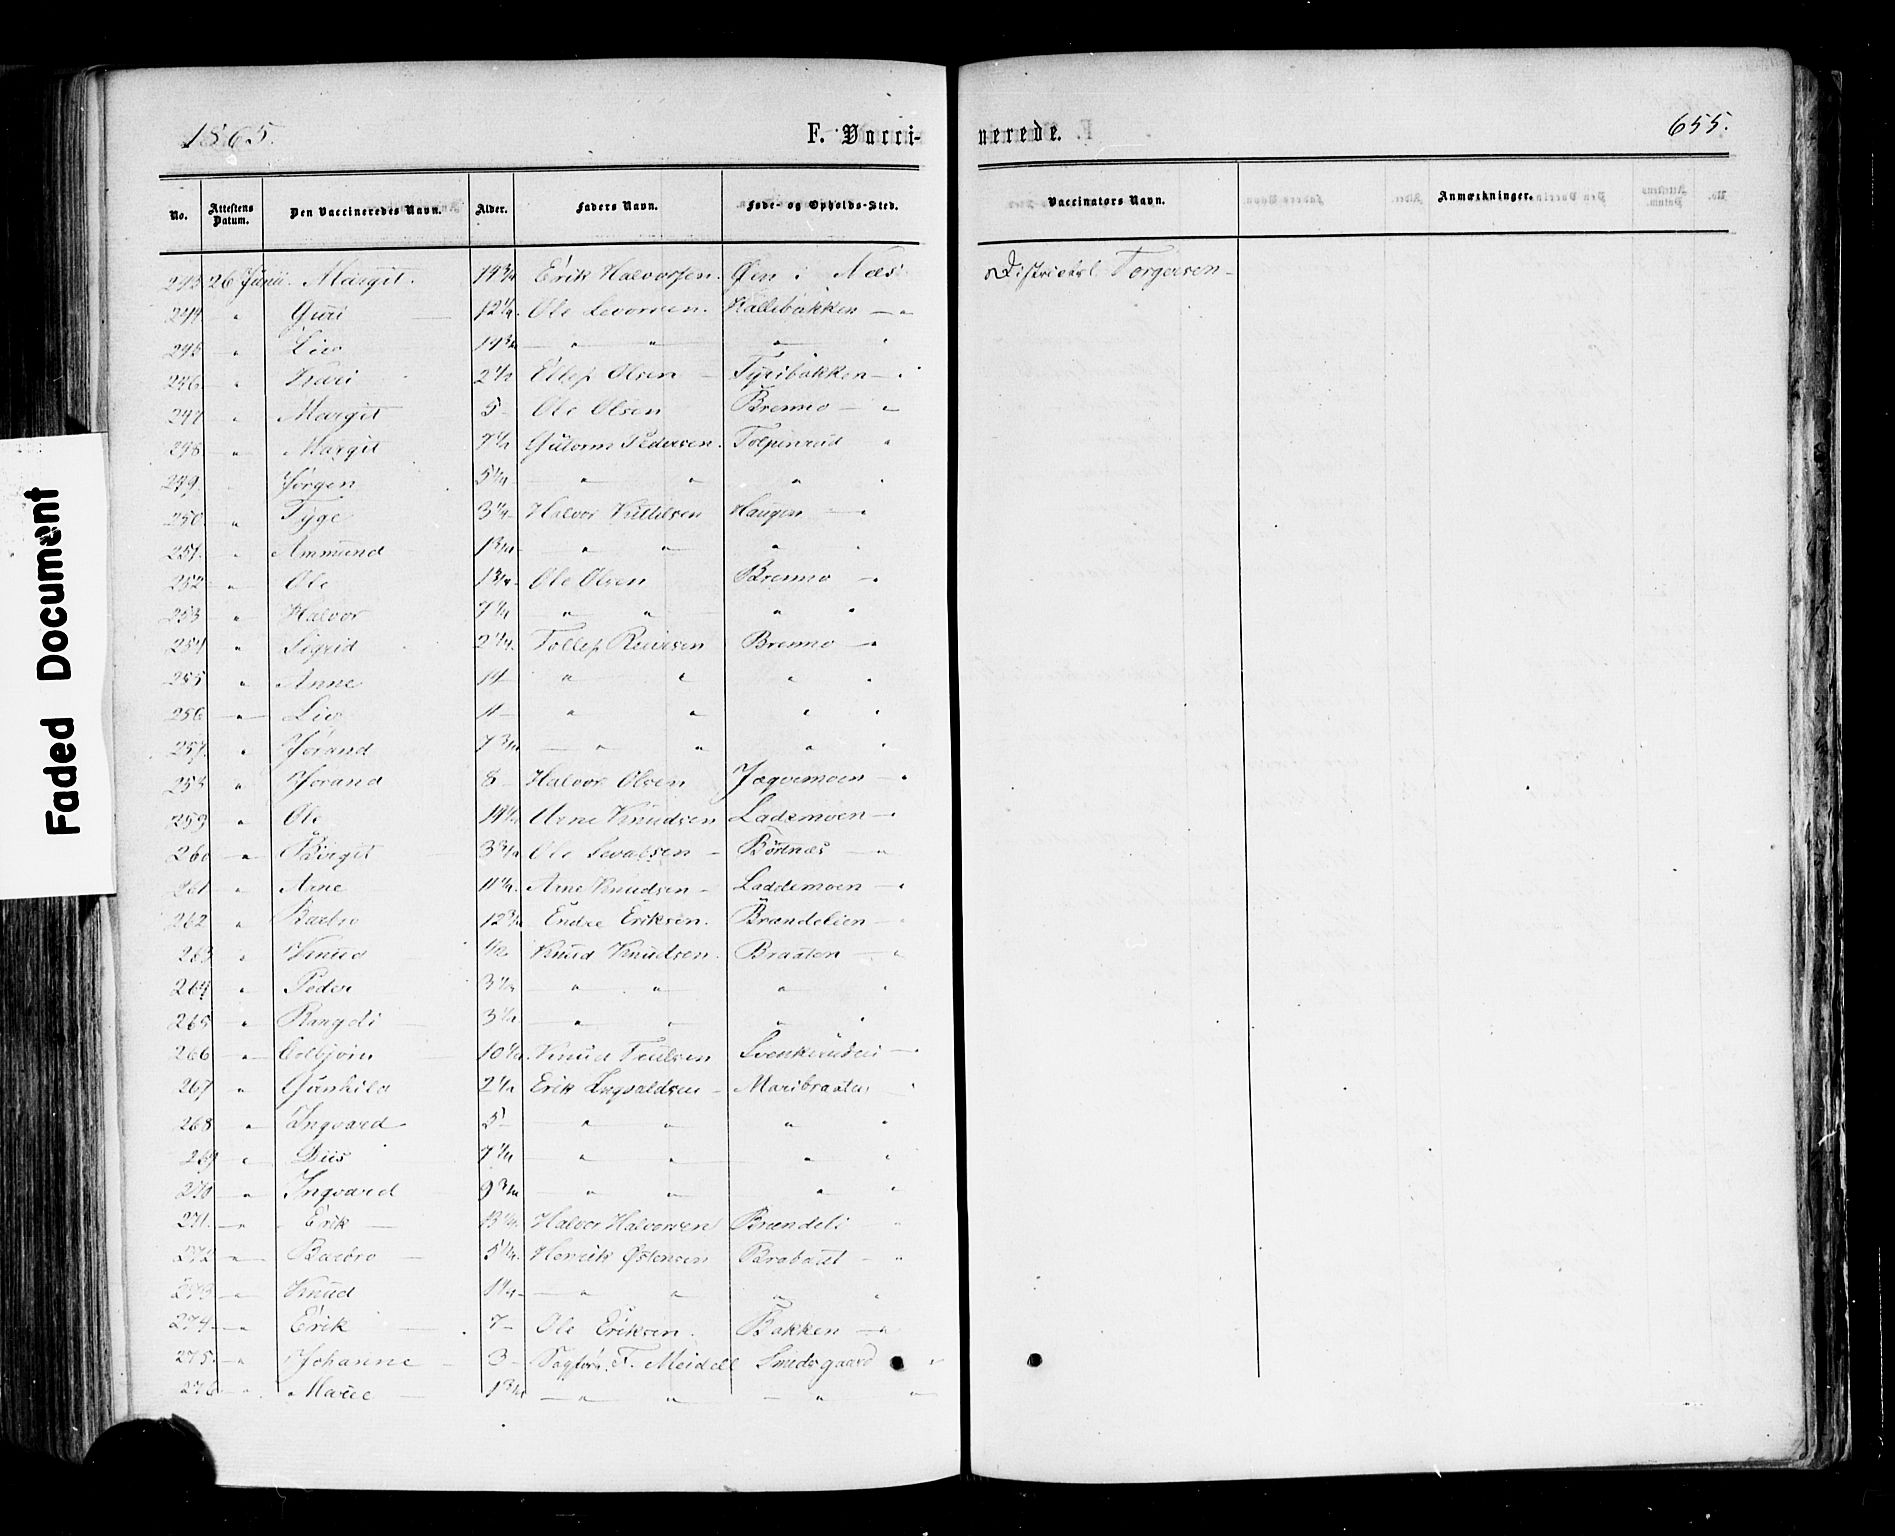 1865.
F. Vacci-
nerede.
655.
No. Attestens Datum. Den Vaccineredes Navn. Alder. Faders Navn. Føde- og Opholds-Sted. Vaccinators Navn. Anmærkninger.
243 26 Junii. Margit. 14 3/4 Erik Halvorsen. Øen i Næs Torgersen
244 " Guri 12 1/4. Ole Levorsen. Hallibakken — "
245 " Liv " " " "
246 " Kari 2 1/2 Ellef Olsen — Tyribakken — "
247 " Margit 5 — Ole Olsen Bremno — "
248 " Margit 7 1/2 Gulorm Pedersen. Tolpinrud "
249. Jørgen 5 1/4 — " " " "
250 " Tyge 3 1/4 — Halvor Killilsen Haugen — "
251. " Ammund 1 3/4 — " " " "
252 — " Ole 1 3/4 — Ole Olsen Bremno — "
253 " Halvor 7 1/4 " " " "
254 " Sigrid 2 1/4. Tollef Bremno — "
255 " Anne " " " "
256 — " — Liv " " " "
257. " Jørand 7 3/4 — " " " "
258 " Jorand 8 — Halvor Olsen Jægermoen — "
259 " Ole 14 1/2 Arne Knudsen Lademoen — "
260 — " Birgit 3 3/4 Ole — Børtnæs — "
261 " Arne 11 1/4. Arne Knudsen — Laddemoen — "
262 " Barbro 12 3/4 Endre Eriksen. Brændelien — "
263 " Knud 1/2 Knud Knudsen. Braaten — "
264 " Peder 3 1/2 " " " "
265 " Rangdi 3 1/2 — " " " "
266 — " — Colbjørn 10 1/2. Knud
267 " Gunhild 2 1/2 Erik Ingvaldsen — Maribraaten "
268 " Ingvard 5 — " " " "
269 " Siis 7 1/4 — " " " "
270 — " Ingvard 9 3/4 — " " " "
271. — " Erik — 13 1/4. Halvor Halvorsen Brændeli — "
272 — " Barbro — 5 1/4. Henrik Østensen Brabaat — "
273 — " Knud 1 1/4 — " " " "
274 — " Erik — 7 — Ole Eriksen. Bakken — "
275. — " Johanne — 3 — Sagfører. F. Meidell Smidsgaard "
276 — " Marie — 1 3/4 — " " — " "
Faded Document